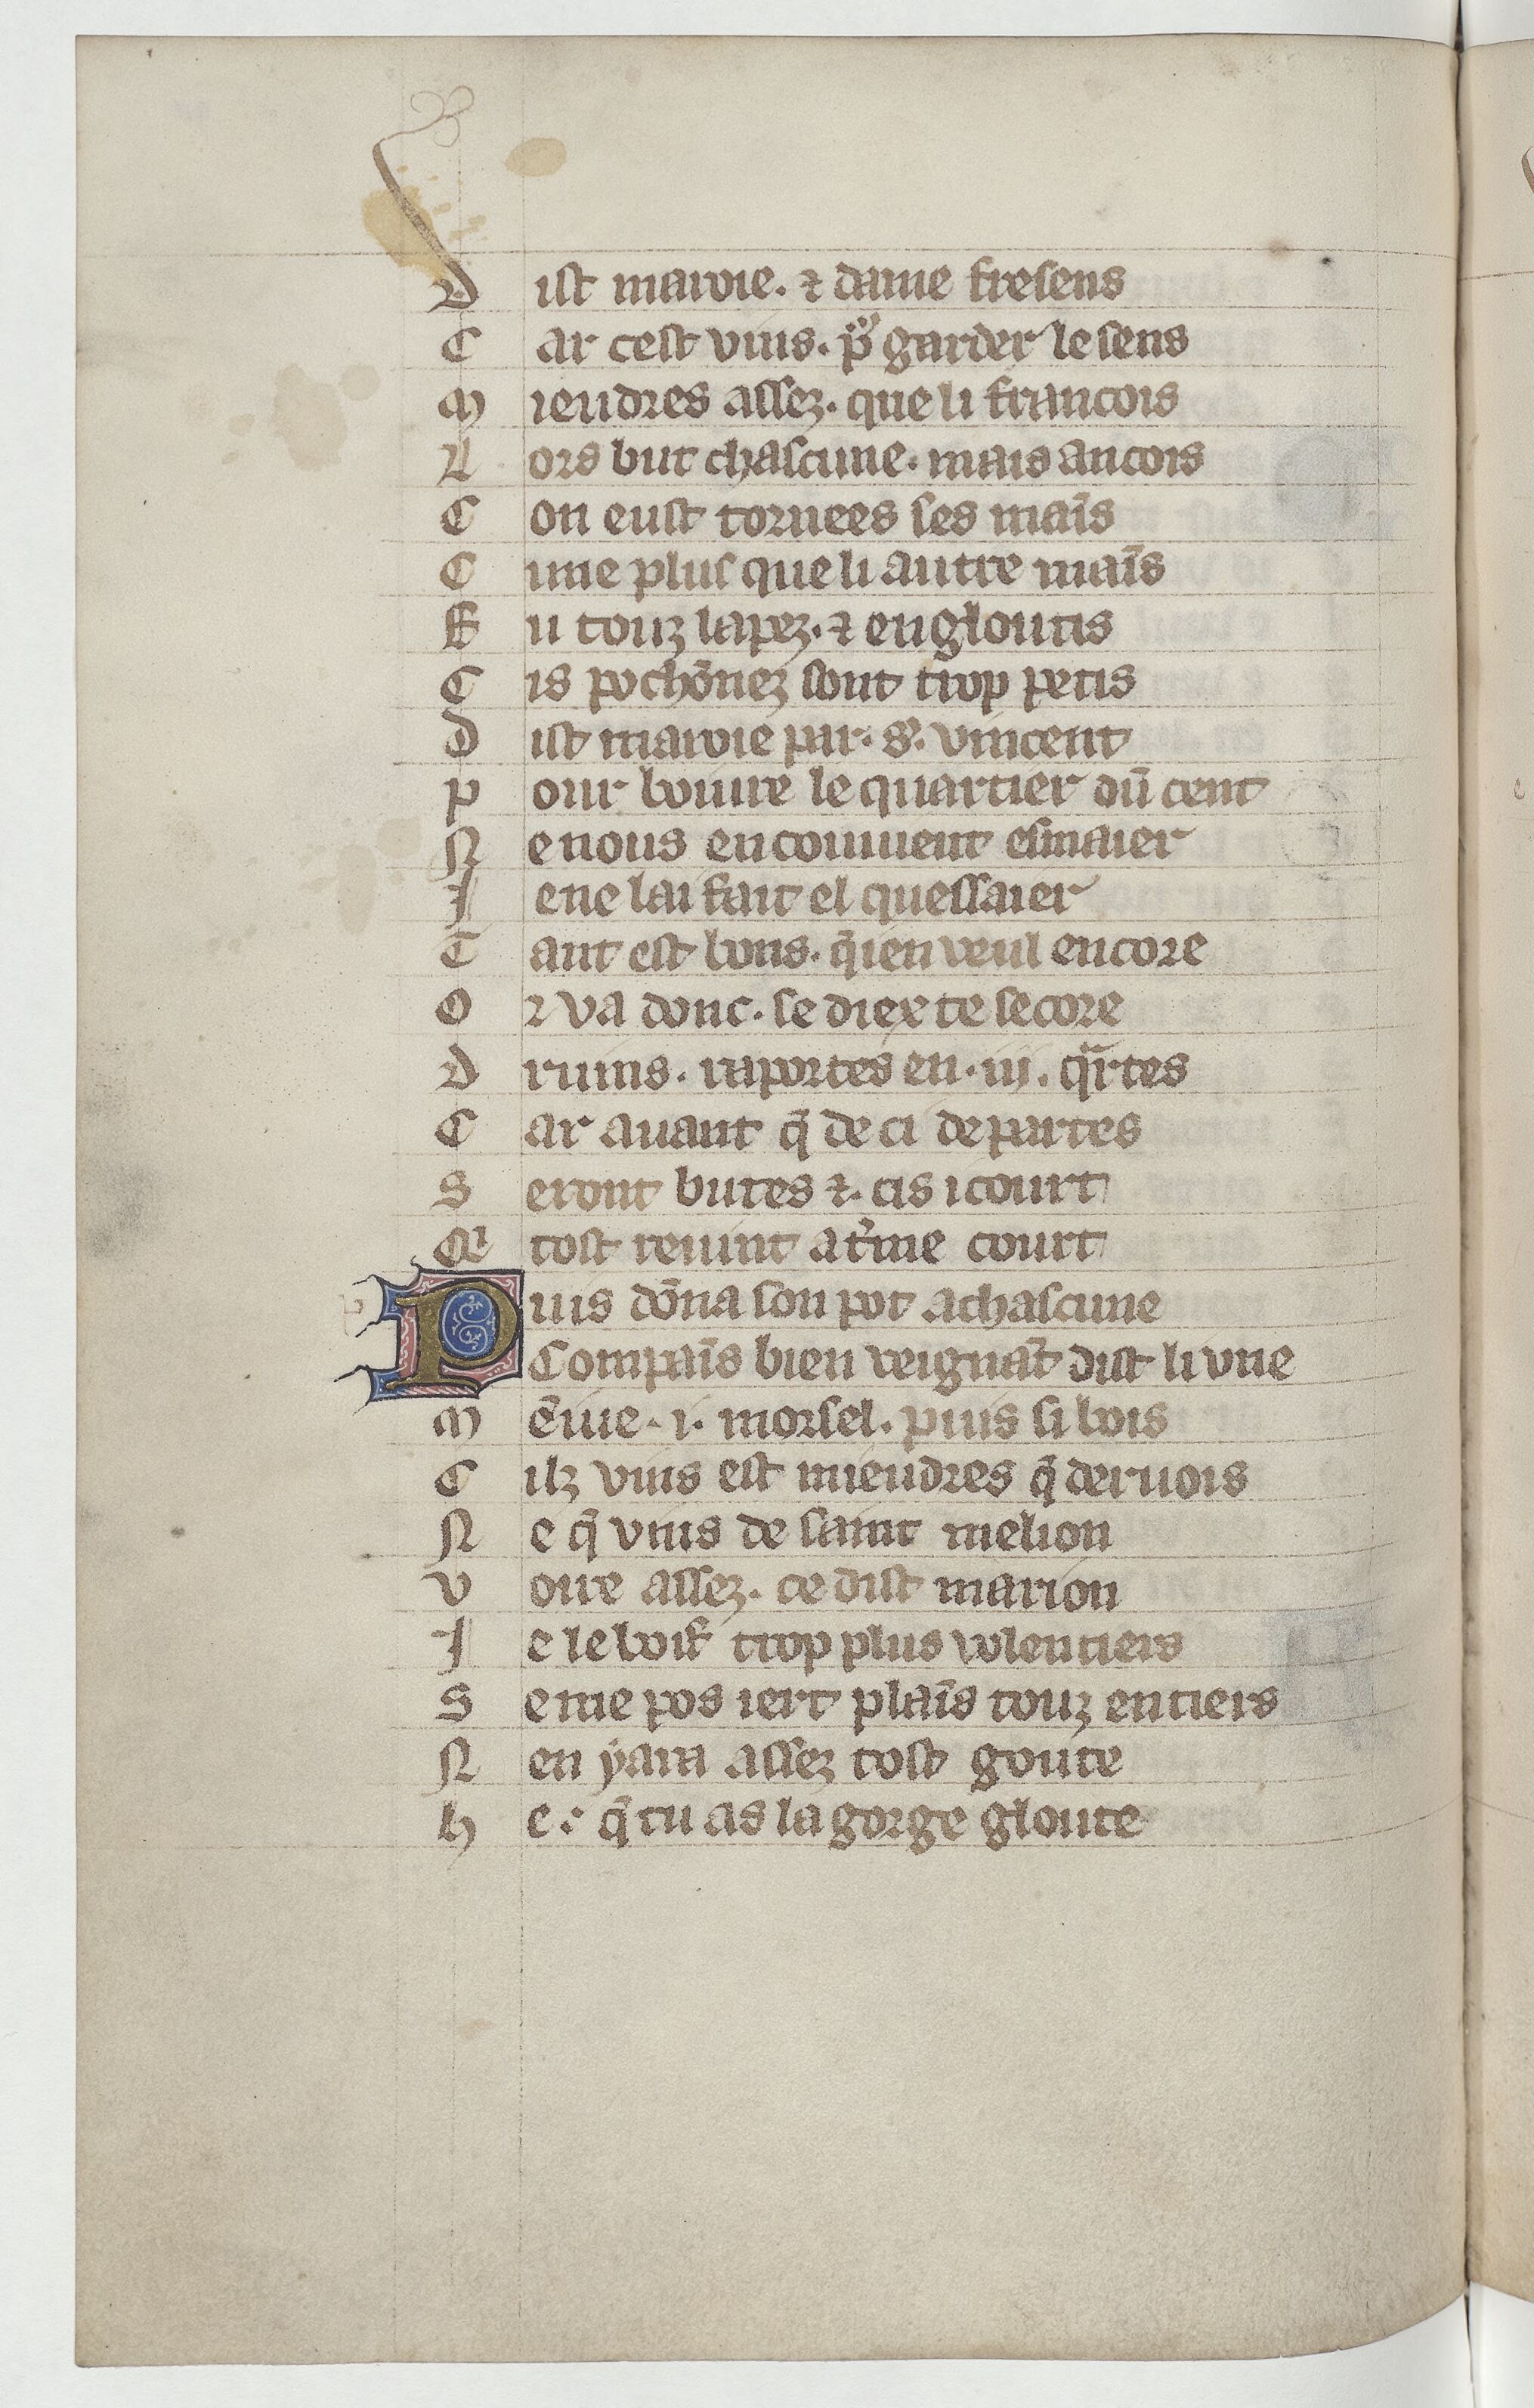 Dist maroie. ⁊ dame fresens
Car cest vins. pᵒʳ garder le sens
Miendres assez. que li francois
Lors but chascune. mais ancois
Con eust tornees ses mais̄
Cune plus que li autre mais̄
Eu touz lapez. ⁊ engloutis
Cis pochōnez sont trop petis
Dist maroie par. s. vincent
Pour bouire le quartier dū cent
Ne nous en couuient esmaier
Je ne lai fait el quessaier
Tant est bons. q̄ ien veul encore
Or va donc. se diex te secore
Druins. raportes en. iij. qʳtes
Car auant q̄ de ci departes
Seront butes ⁊. cis i court
Qⁱ tost reuint a tʼme court
Puis dōna son pot a chascune
Compais̄ bien veignāt dist li vne
Mēiue. i. morsel. puis si bois
Cilz vins est miendres q̄ deruois
Ne q̄ vins de saint melion
Voire assez. ce dist marion
Je le boif trop plus volentiers
Se me pos iert plais̄ touz entiers
Nen y ara assez tost goute
he. q̄ tu as la gorge gloute